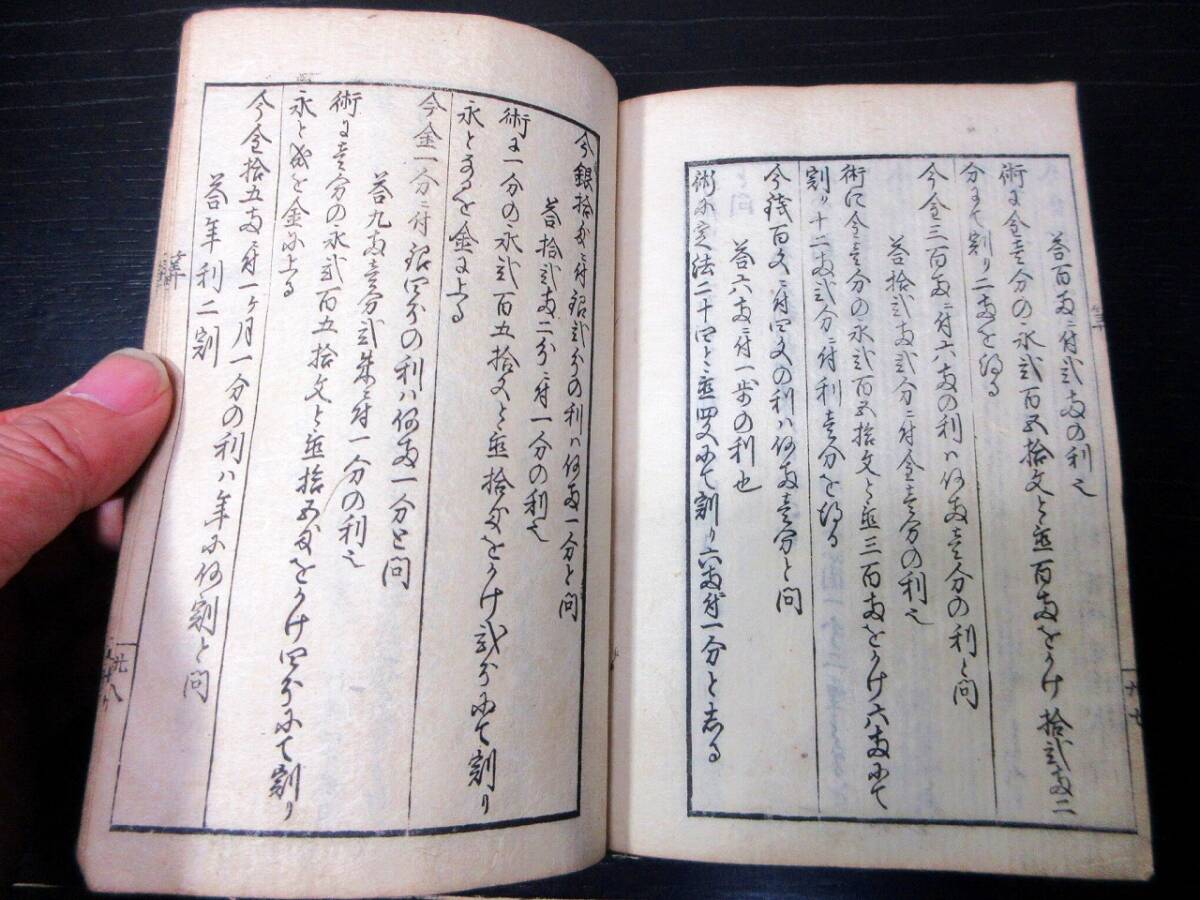 答百両ニ付弐両の利也
術に金壱分の永弐百五拾文と置百両をかけ拾弐両二
分にて割り二両を得る
今金三百両ニ付六両の利ハ何両壱分の利と問
答拾弐両弐分ニ付金壱分の利也
術に金壱分の永弐百五拾文と置三百両をかけ六両にて
割り十二両弐分ニ付利壱分を得る
今銭百文ニ付四文の利ハ何両壱分と問
答六両ニ付一歩の利也
術に定法二十四と置四文にて割り六両付一分としる
今銀拾匁ニ付銀弐分の利ハ何両一分と問
答拾弐両二分ニ付一分の利也
術に一分の永弐百五拾文と置拾匁をかけ弐分にて割り
永となるを金に上る
今金一分ニ付銀四分の利ハ何両一分と問
答九両壱分弐朱ニ付一分の利也
術に壱分の永弐百五拾文と置拾五匁をかけ四分にて割り
永と成を金に上る
今金拾五両ニ付一ヶ月一分の利ハ年に何割と問
答年利二割